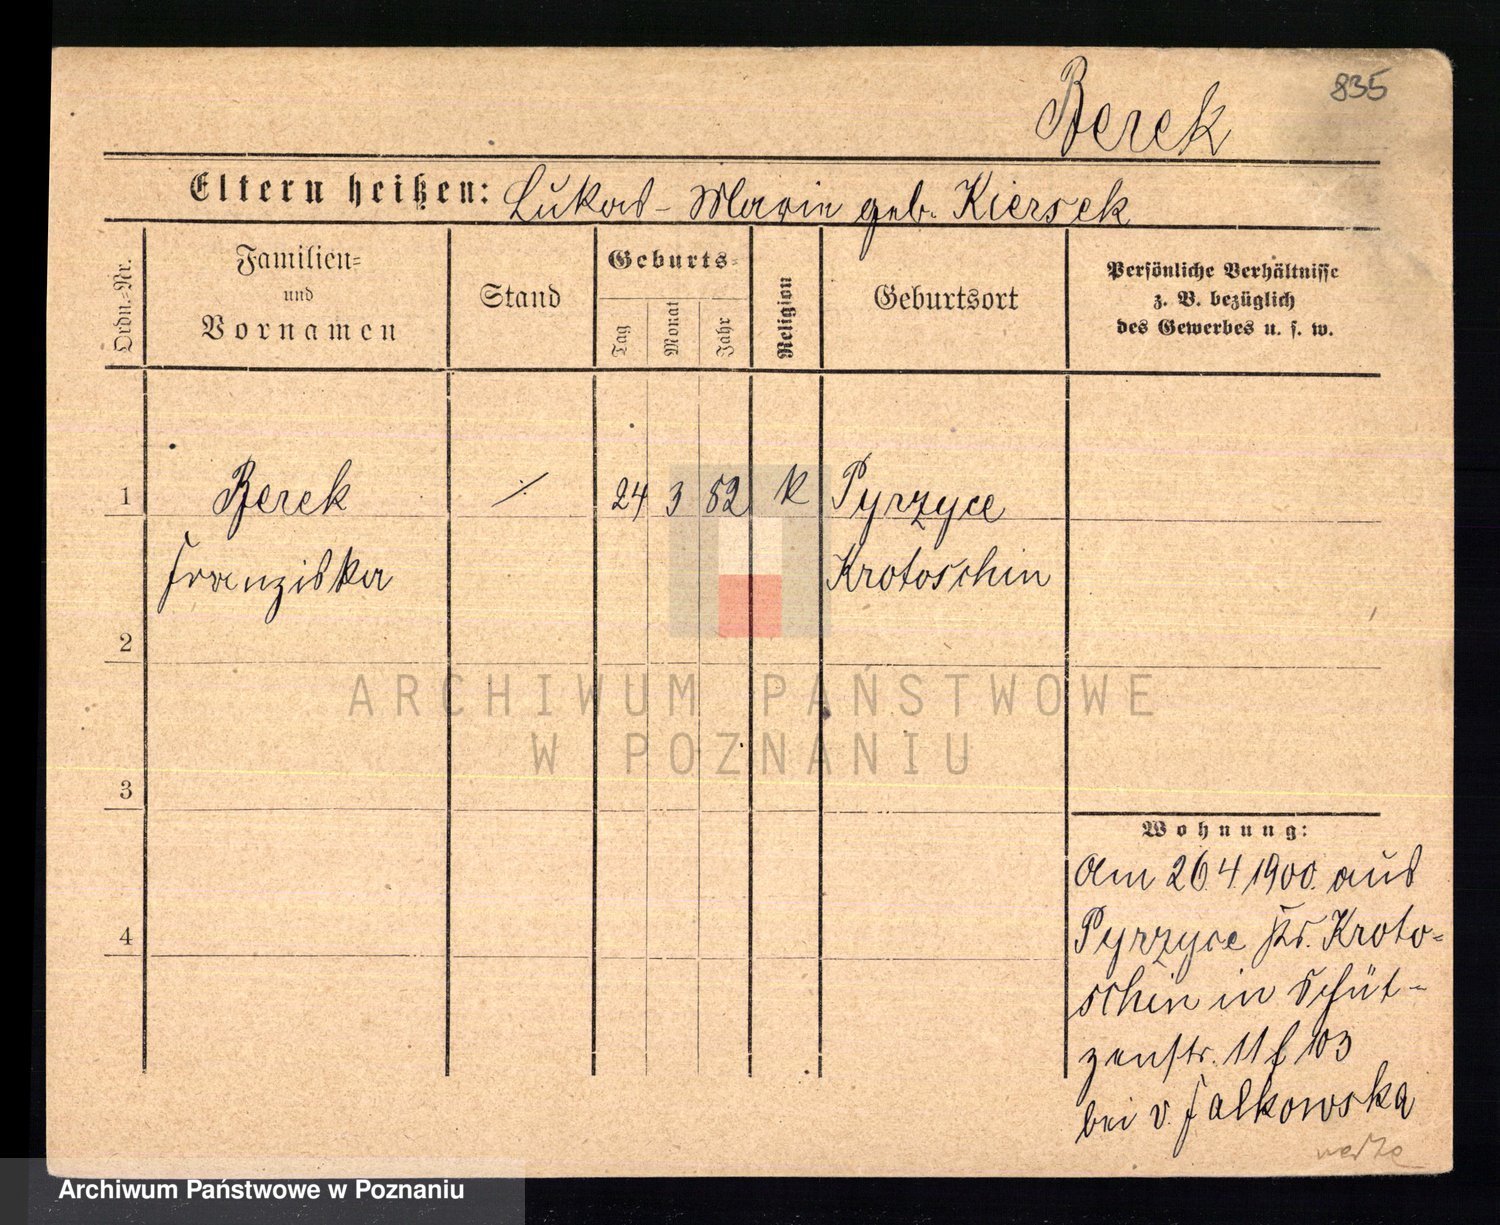 835
Berek
Eltern heißen: Lukas - Marie geb. Kiersek
Ordn.-Nr.
Familien-
und
Vornamen
Stand
Geburts-
Tag
Monat
Jahr
Religion
Geburtsort
Persönliche Verhältnisse
z. B. bezüglich
des Gewerbes u. s. w.
1 Berek ./. 24 3 82 k Pyrzyce
Franziska Krotoschin
2
3
4
Wohnung:
Am 26.4.1900. aus
Pyrzyce Krs. Kroto-
schin in Schüt-
zenstr. 11 f 103
bei v. Falkowska
ARCHIWUM PAŃSTWOWE
W POZNANIU
Archiwum Państwowe w Poznaniu